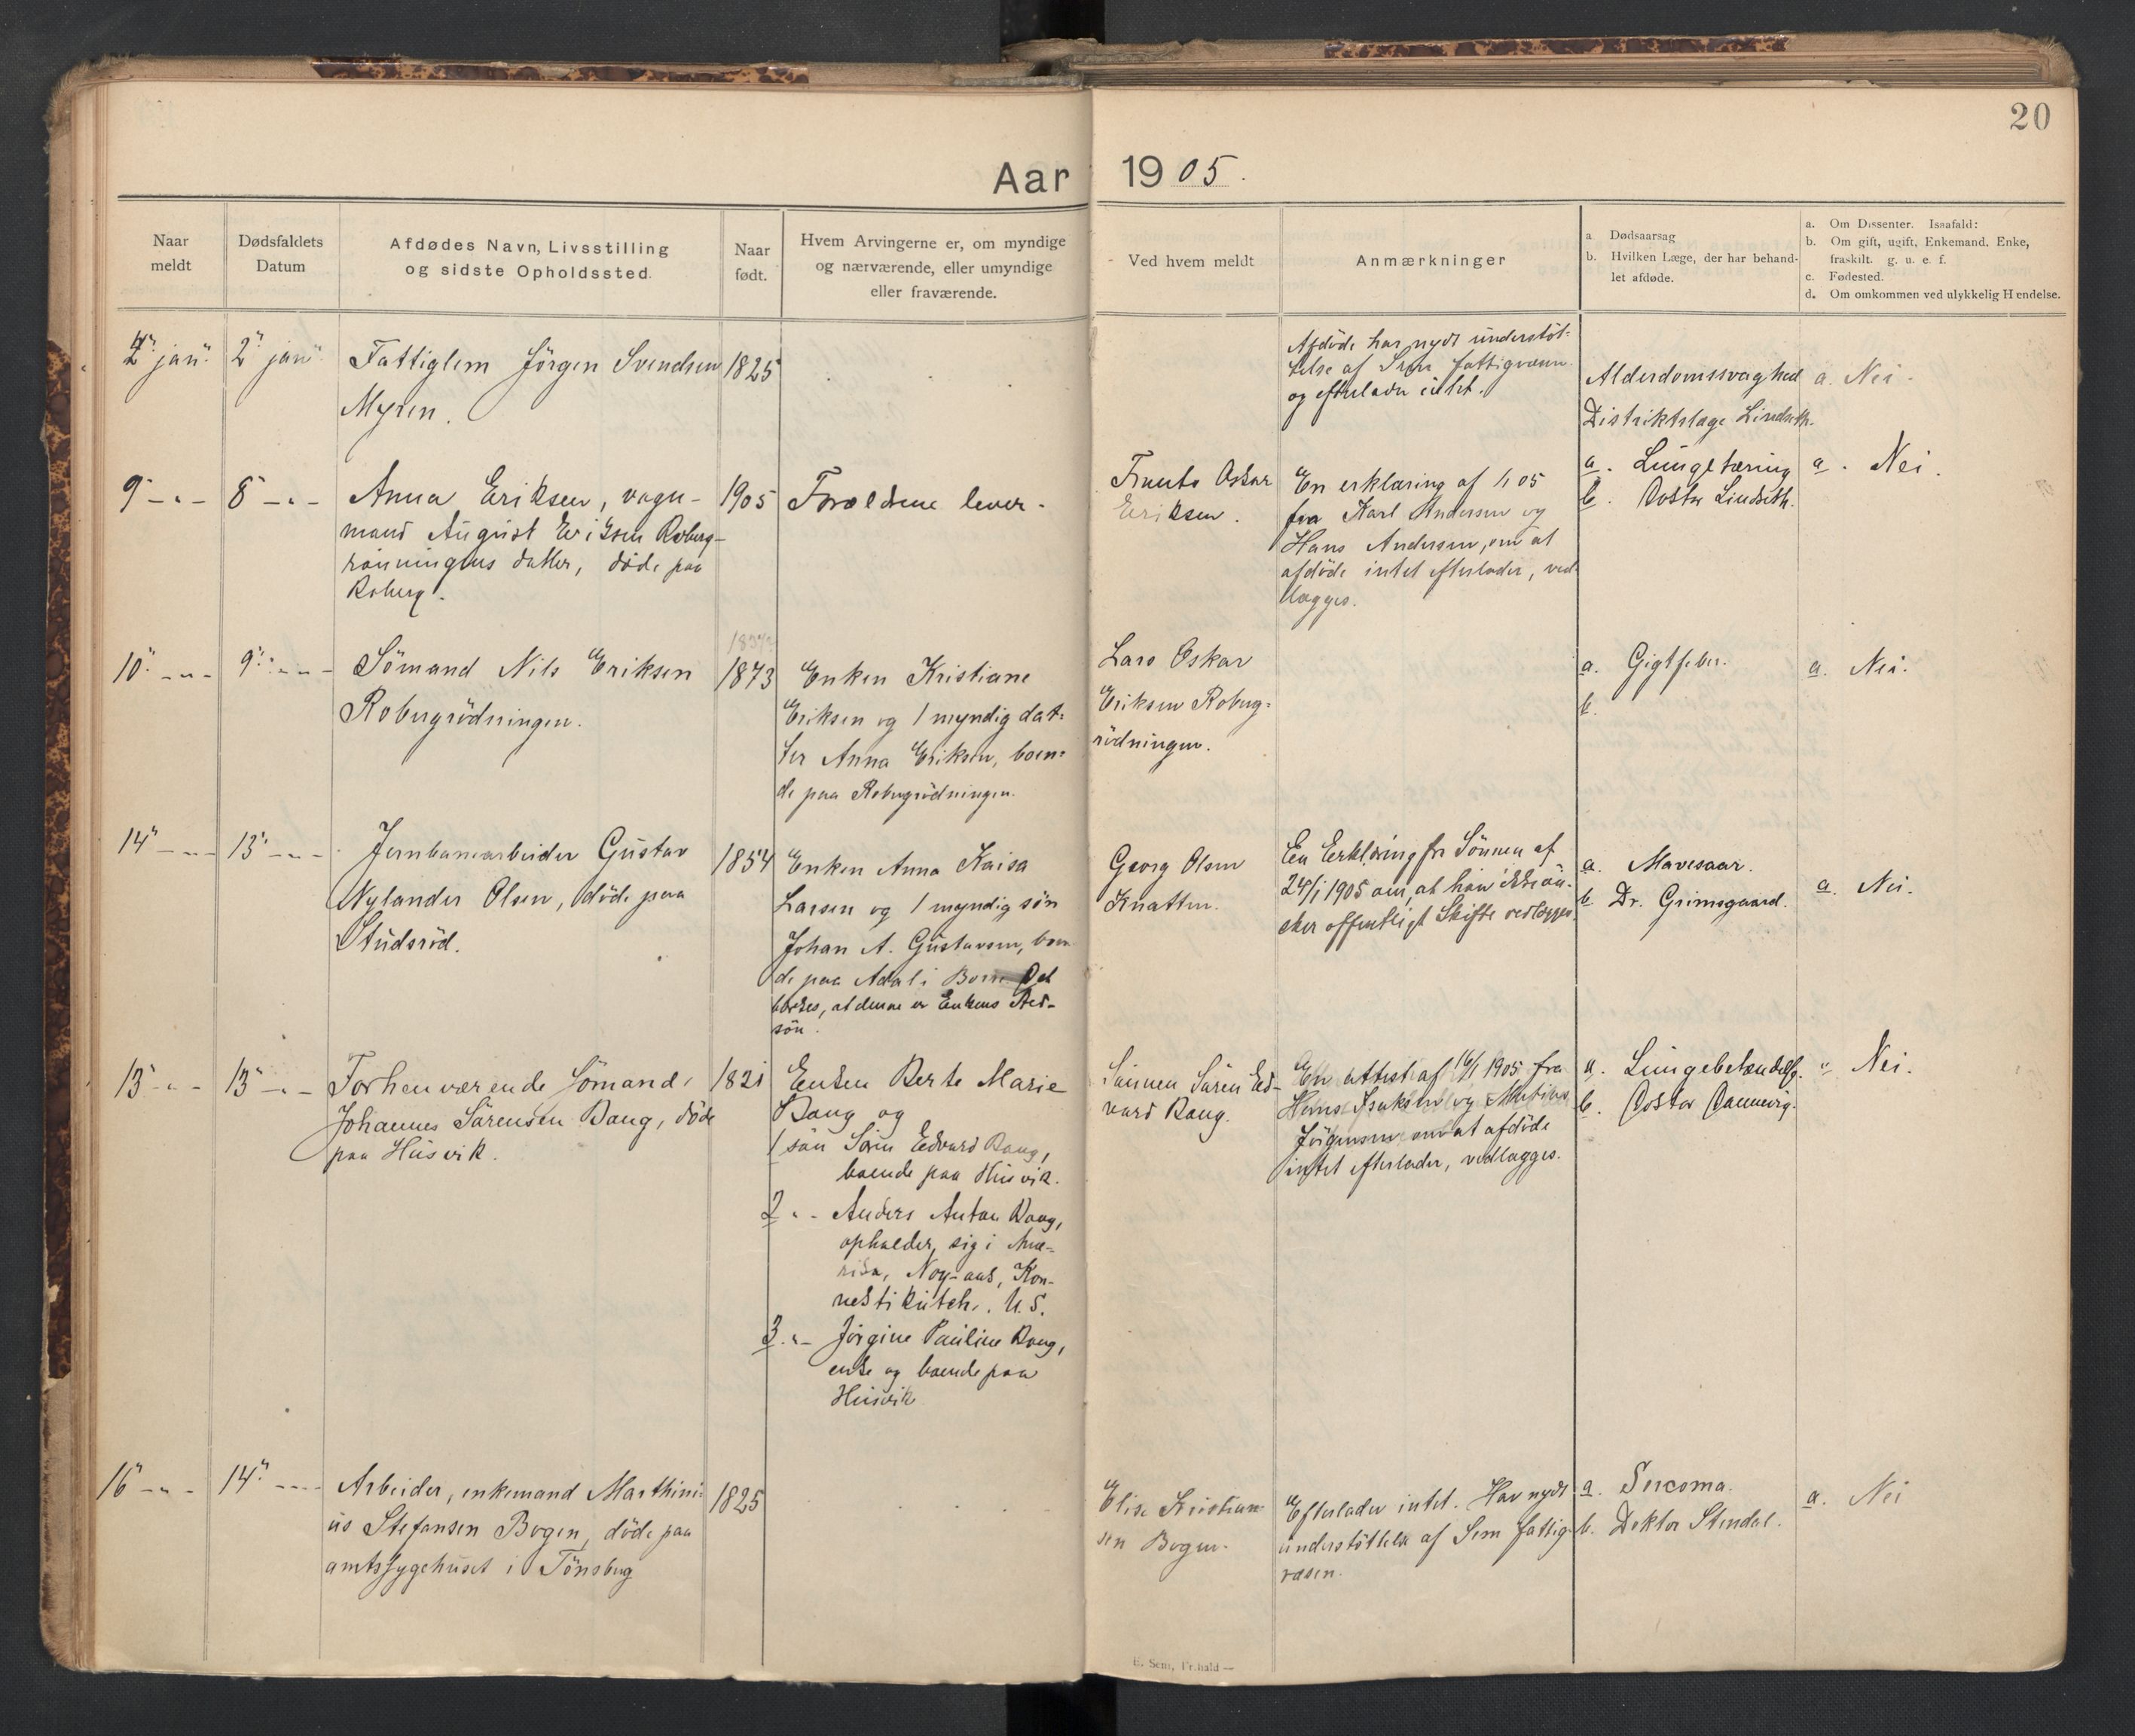 20
Aar 1905.
Naar
meldt
Dødsfaldets
Datum
Afdødes Navn, Livsstilling
og sidste Opholdssted.
Naar
født.
Hvem Arvingerne er, om myndige
og nærværende, eller umyndige
eller fraværende.
Ved hvem meldt
Anmærkninger
a Dødsaarsag
b. Hvilken Læge, der har behand-
let afdøde.
a. Om Dissenter. Isaafald:
b. Om gift, ugift, Enkemand. Enke,
fraskilt. g. u. e. f.
c. Fødested.
d. Om omkommen ved ulykkelig Hændelse.
jan.
2" jan"
Fattiglem Jörgen Svendsen
Myren.
1825
Afdöde har nydt understöt-
telse af Sem fattigvæsen
og efterlader intet.
Alderdomssvaghed
Distriktslæge Lindseth.
a. Nei.
9 - " -
8 - " -
Anna Eriksen, vogn-
mand August Eriksen Roberg-
rönningens datter, döde paa
Roberg.
1905
Forældrene lever.
Oskar
Eriksen.
En erklæring af 05
fra Karl Andersen og
Hans Andersen, om at
afdöde intet efterlader, ved-
lægges.
a. Lungetæring
b. Doktor Lindseth.
a. Nei.
10" - " -
9" - " -
Sömand Nils Eriksen
Robergrödningen.
1873
Enken Kristiane
Eriksen og 1 myndig dat-
ter Anna Eriksen, boen-
de paa Robergrödningen.
Lars Oskar
Eriksen Roberg-
rödningen.
a. Gigtfeber.
b.
a. Nei.
14" - " -
13" - " -
Jernbanearbeider Gustav
Nylander Olsen, döde paa
Studsröd.
1854
Enken Anna Kaisa
Larsen og 1 myndig sön
Johan A. Gustavsen, boen
de paa Adal i Borre Det
at denne er Enkens Sted-
sön.
Georg Olsen
Knatten.
En Erklæring fra Sönnen af
24/1 1905 om, at han ikke ön-
sker offentligt Skifte vedlægges.
a. Mavesaar.
b. Dr. Grimsgaard.
a. Nei.
13" - " -
13" - " -
Forhenværende Sömand,
Johannes Sörensen Bang, döde
paa Husvik.
1821
Enken Berte Marie
Bang og
1 sön Sören Edvard Bang,
boende paa Husvik.
2 " - Anders Anton Bang,
opholder sig i Ame-
rika, Kon-
nektikutch. U. S.
3 " - Jörgine Pauline Bang,
enke og boende paa
Husvik
Sönnen Sören Ed-
vard Bang.
En attest af 16/1 1905 fra
Hans Isaksen og
Jörgensen om at afdöde
intet efterlader, vedlægges.
a. Lungebetændelse.
b. Doktor Dannevig.
" Nei.
16" - " -
14" - " -
Arbeider, enkemand Marthini-
us Stefansen Bogen, döde paa
amtssygehuset i Tönsberg
1825
Elise Kristian-
sen Bogen.
Efterlader intet. Har nydt
understöttelse af Sem fattig-
væsen.
a. Sarcoma.
b. Doktor Stendal.
a. Nei
E. Sem, Fr.hald —